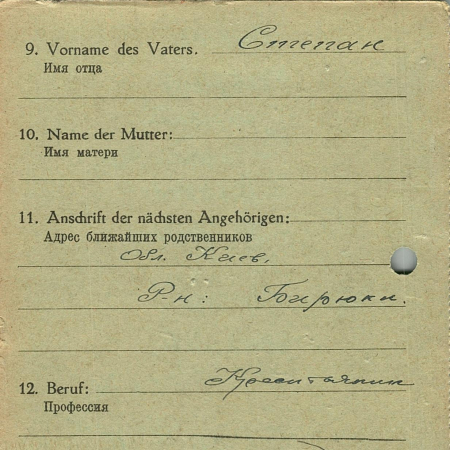 9. Vorname des Vaters. Степан
Имя отца
10. Name der Mutter:
Имя матери
11. Anschrift der nächsten Angehörigen:
Адрес ближайших родственников
Обл. Киев,
Р-н: Бирюки.
12. Beruf: Крестьянин
Профессия